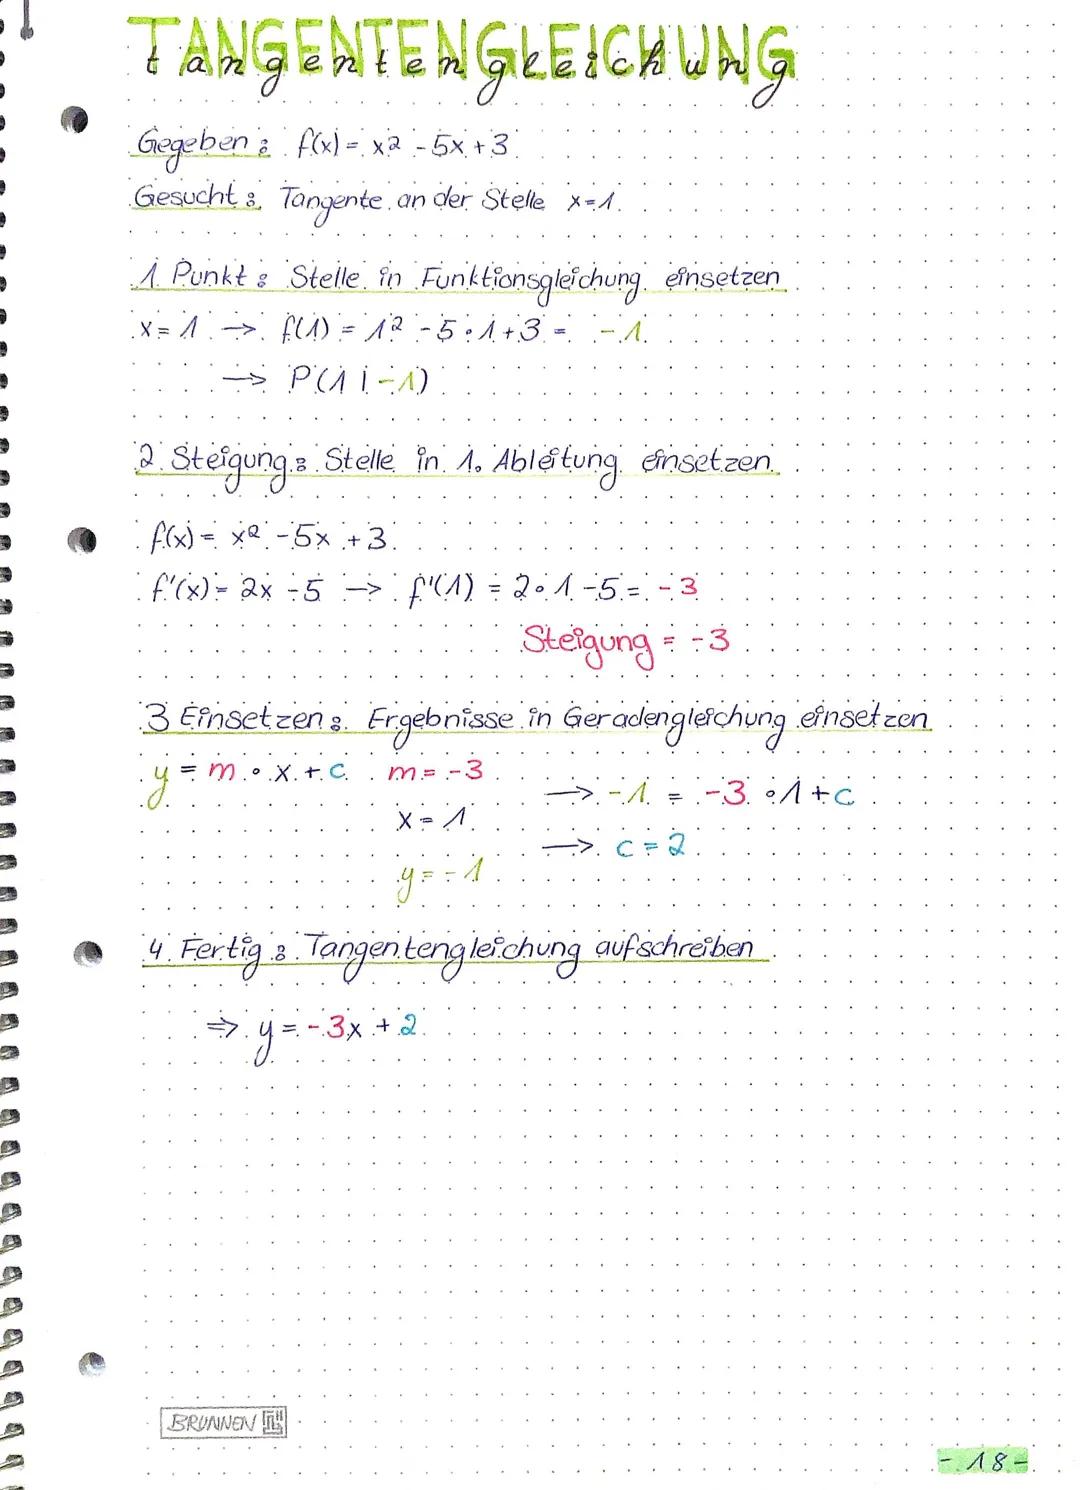 TANGENTENGLEICHUNG
tangentengleichung
Gegeben: f(x) = x² - 5x + 3
Gesucht: Tangente an der Stelle x = 1
1. Punkt: Stelle in Funktionsgleichung einsetzen
x = 1 → f(1) = 1² - 5 · 1 + 3 = -1
→ P(1 | -1)
2. Steigung: Stelle in 1. Ableitung einsetzen
f(x) = x² - 5x + 3
f'(x) = 2x - 5 → f'(1) = 2 · 1 - 5 = -3
Steigung = -3
3 Einsetzen: Ergebnisse in Geradengleichung einsetzen
y = m · x + c m = -3 → -1 = -3 · 1 + c
x = 1
→ c = 2
y = -1
4. Fertig: Tangentengleichung aufschreiben
⇒ y = -3x + 2
BRUNNEN
- 18 -